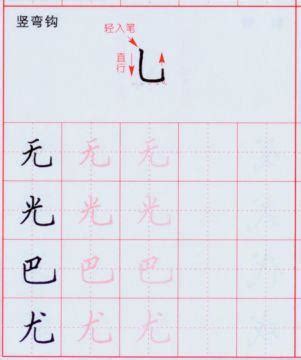 竖弯钩
轻入笔
直行
乚
无 无 无
光 光 光
巴 巴 巴
尤 尤 尤